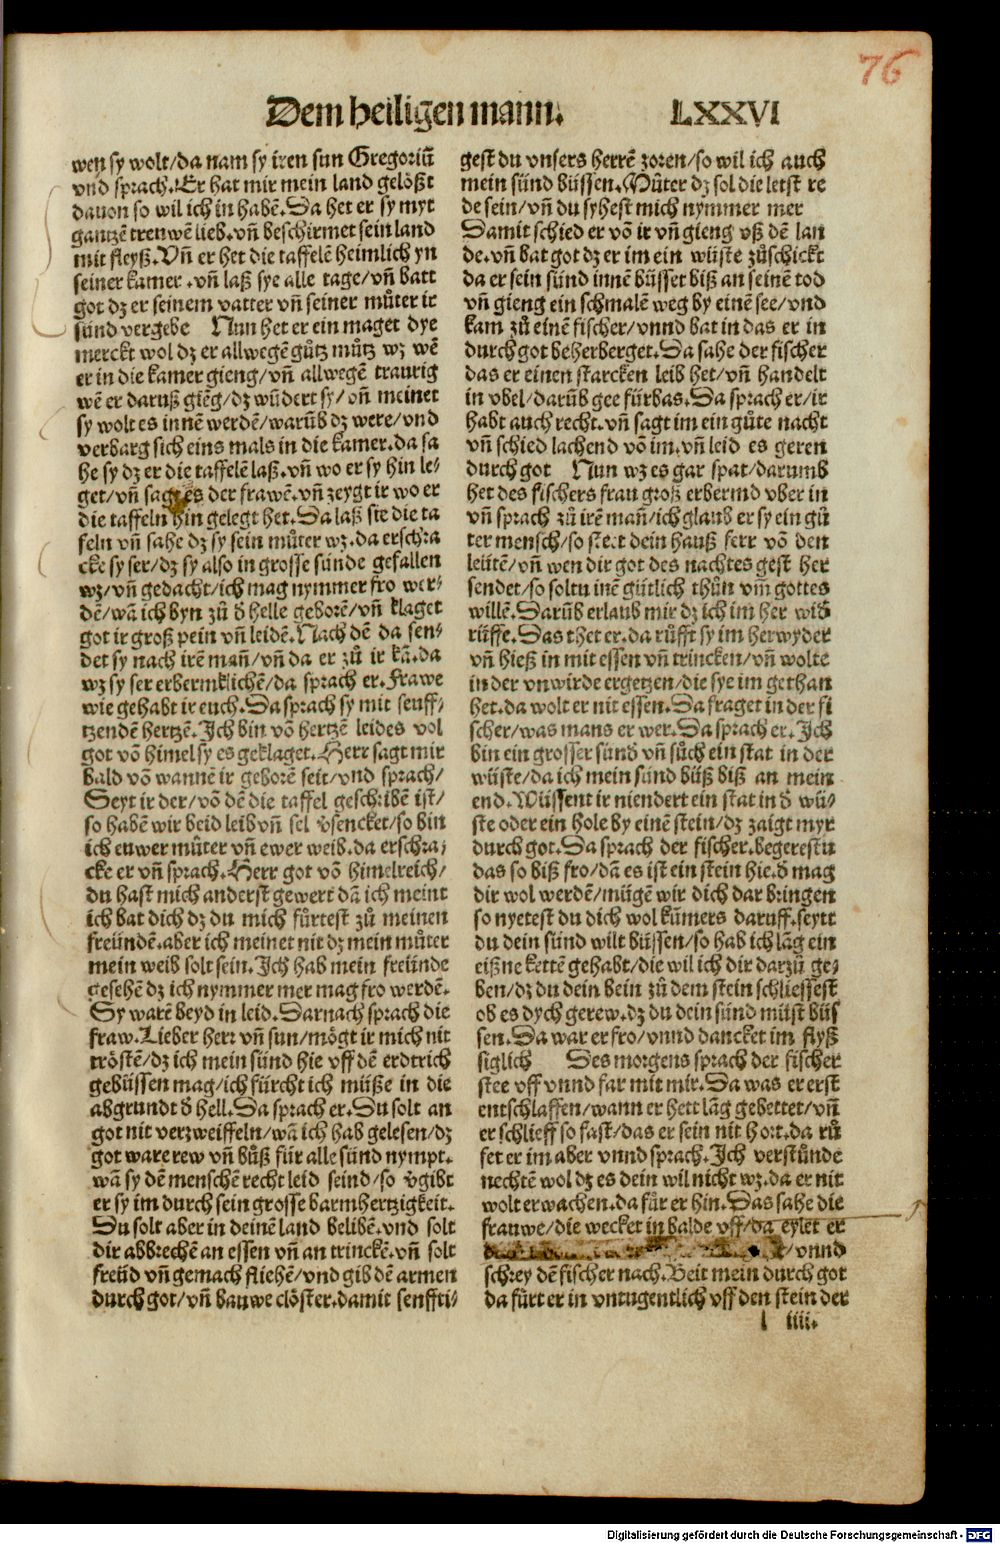 76
Dem heiligen mann. LXXVI
wen sy wolt/da nam sy iren sun Gregoriū
vnd sprach.Er hat mir mein land gelößt
dauon so wil ich in habē.Da het er sy myt
gantzē treuwē lieb.vñ beschirmet sein land
mit fleyß.Vñ er het die taffelē heimlich yn
seiner kamer .vñ laß sye alle tage/vñ batt
got dz er seinem vatter vñ seiner můter ir
sünd vergebe Nun het er ein maget dye
merckt wol dz er allwegē gůtz můtz wz wē
er in die kamer gieng/vñ allwegē traurig
wē er daruß giēg/dz wūdert sy/vñ meinet
sy wolt es innē werdē/warūb dz were/vnd
verbarg sich eins mals in die kamer.da sa
he sy dz er die taffelē laß.vñ wo er sy hin le⸗
get/vñ sagt es der frawē.vñ zeygt ir wo er
die taffeln hin gelegt het.Da laß sie die ta
feln vñ sahe dz sy sein můter wz.da erschra
cke sy ser/dz sy also in grosse sünde gefallen
wz/vñ gedacht/ich mag nymmer fro wer⸗
dē/wā ich byn zů d̄ helle geborē/vñ klaget
got ir groß pein vñ leidē.Nach dē da sen⸗
det sy nach irē mañ/vñ da er zů ir kā.da
wz sy ser erbermklichē/da sprach er.Frawe
wie gehabt ir euch.Da sprach sy mit seuff⸗
tzendē hertzē.Ich bin vō hertzē leides vol
got vō himel sy es geklaget.Herr sagt mir
bald vō wannē ir geborē seit/vnd sprach/
Seyt ir der/vō dē die taffel geschribē ist/
so habē wir beid leib vñ sel v̄sencket/so bin
ich euwer můter vñ ewer weib.da erschra⸗
cke er vñ sprach.Herr got vō himelreich/
du hast mich anderst gewert dā ich meint
ich bat dich dz du mich fürtest zů meinen
freündē.aber ich meinet nit dz mein můter
mein weib solt sein.Ich hab mein freünde
gesehē dz ich nymmer mer mag fro werdē.
Sy warē beyd in leid.Darnach sprach die
fraw.Lieber herr vñ sun/mögt ir mich nit
tröstē/dz ich mein sünd hie vff dē erdtrich
gebüssen mag/ich fürcht ich müße in die
abgrundt d̄ hell.Da sprach er.Du solt an
got nit verzweiffeln/wā ich hab gelesen/dz
got ware rew vñ bůß für alle sünd nympt.
wā sy dē menschē recht leid seind/so v̄gibt
er sy im durch sein grosse barmhertzigkeit.
Du solt aber in deinē land belibē.vnd solt
dir abbrechē an essen vñ an trinckē.vñ solt
freüd vñ gemach fliehē/vnd gib dē armen
durch got/vñ bauwe clöster.damit senffti⸗
gest du vnsers herrē zoren/so wil ich auch
mein sünd büssen.Můter dz sol die letst re
de sein/vñ du syhest mich nymmer mer
Damit schied er vō ir vñ gieng vß dē lan
de.vñ bat got dz er im ein wüste zůschickt
da er sein sünd innē büsset biß an seinē tod
vñ gieng ein schmalē weg by einē see/vnd
kam zů einē fischer/vnnd bat in das er in
durch got beherberget.Da sahe der fischer
das er einen starcken leib het/vñ handelt
in vbel/darūb gee fürbas.Da sprach er/ir
habt auch recht.vñ sagt im ein gůte nacht
vñ schied lachend vō im.vñ leid es geren
durch got Nun wz es gar spat/darumb
het des fischers frau groß erbermd vber in
vñ sprach zů irē mañ/ich glaub er sy ein gů
ter mensch/so steet dein hauß ferr vō den
leütē/vñ wen dir got des nachtes gest her
sendet/so soltu inē gütlich thůn vm̄ gottes
willē.Darūb erlaub mir dz ich im her wid̄
rüffe.Das thet er.da růfft sy im herwyder
vñ hieß in mit essen vñ trincken/vñ wolte
in der vnwirde ergetzen/die sye im gethan
het.da wolt er nit essen.Da fraget in der fi
scher/was mans er wer.Da sprach er.Ich
bin ein grosser sünd̄ vñ sůch ein stat in der
wüste/da ich mein sünd büß biß an mein
end.Wüssent ir niendert ein stat in d̄ wü⸗
ste oder ein hole by einē stein/dz zaigt myr
durch got.Da sprach der fischer.begerestu
das so biß fro/dā es ist ein stein hie.d̄ mag
dir wol werdē/mügē wir dich dar bringen
so nyetest du dich wol kūmers daruff.seytt
du dein sünd wilt büssen/so hab ich lāg ein
eißne kettē gehabt/die wil ich dir darzů ge⸗
ben/dz du dein bein zů dem stein schliessest
ob es dych gerew.dz du dein sünd můst büs
sen.Da war er fro/vnnd dancket im flyß
siglich Des morgens sprach der fischer
stee vff vnnd far mit mir.Da was er erst
entschlaffen/wann er hett lāg gebettet/vñ
er schlieff so fast/das er sein nit hort.da rů
fet er im aber vnnd sprach.Ich verstünde
nechtē wol dz es dein wil nicht wz.da er nit
wolt erwachen.da für er hin.Das sahe die
frauwe/die wecket in balde vff/da eylet er
/vnnd
schrey dē fischer nach.Beit mein durch got
da fürt er in vntugentlich vff den stein der
l iiii.
Digitalisierung gefördert durch die Deutsche Forschungsgemeinschaft - DFG